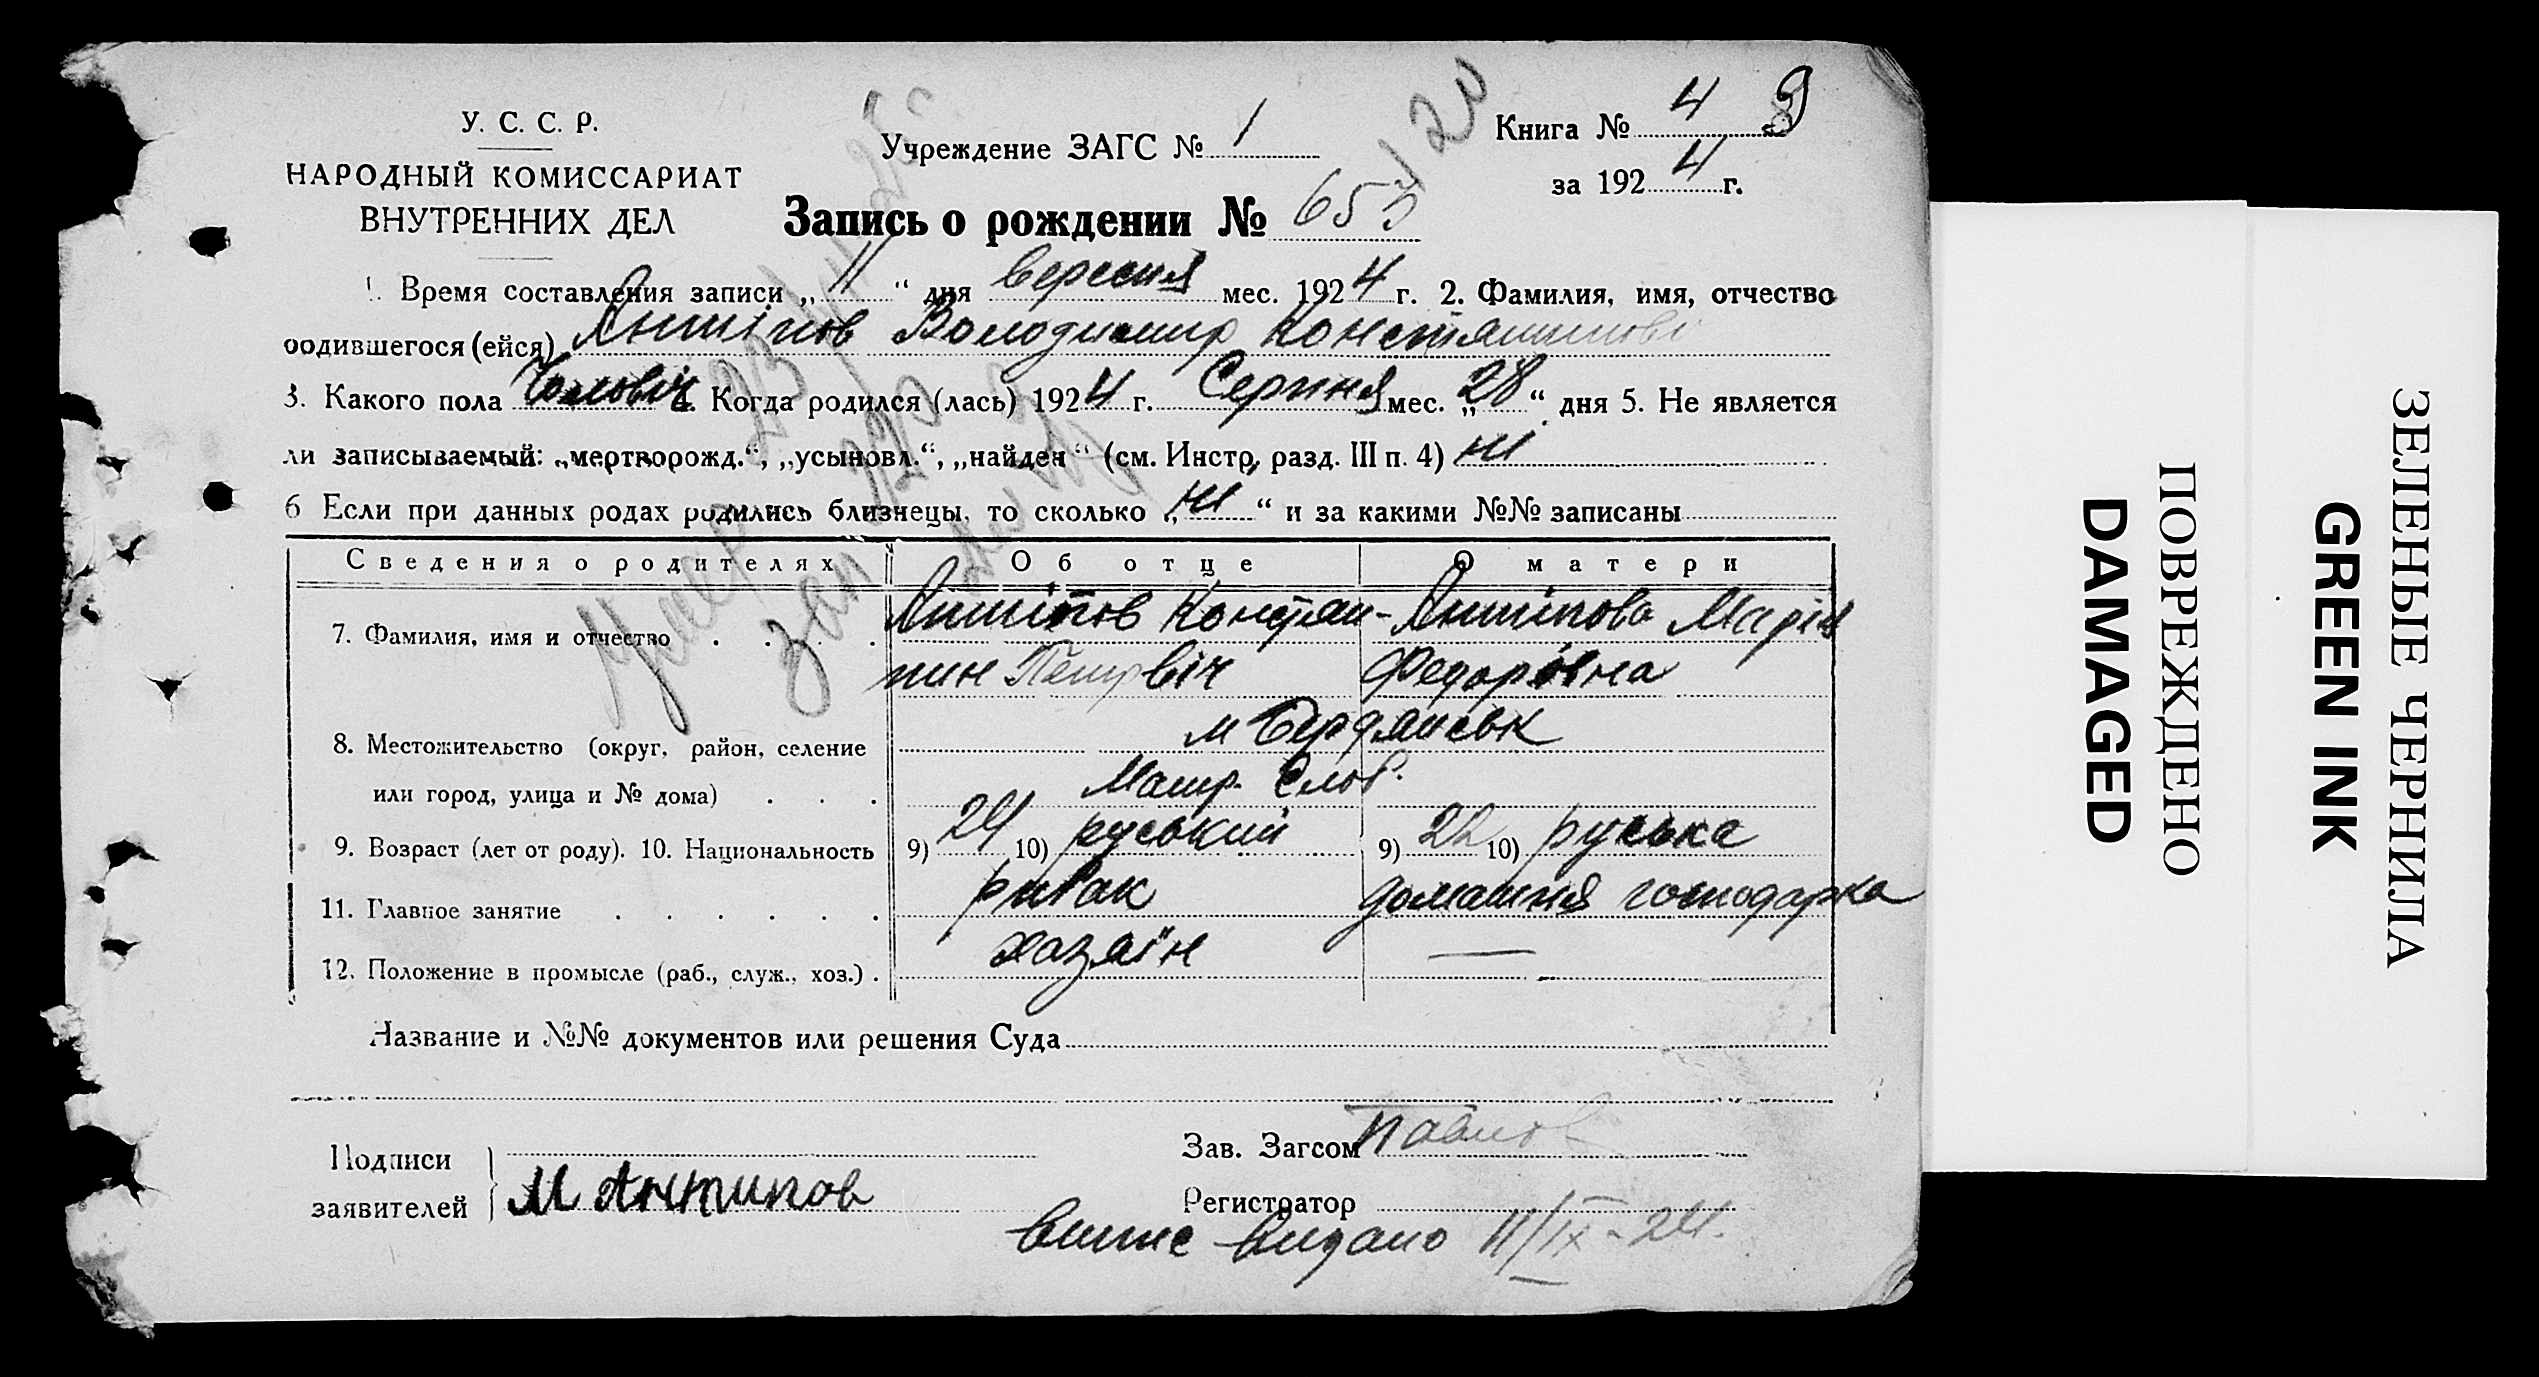 У. С. С. Р.
НАРОДНЫЙ КОМИССАРИАТ
ВНУТРЕННИХ ДЕЛ
Учреждение ЗАГС № 1
Книга № 4 9
за 1924 г.
420
Запись о рождении № 655
1. Время составления записи „11“ дня вересня мес. 1924 г. 2. Фамилия, имя, отчество
родившегося (ейся) Антіпов Володимир Константинові
3. Какого пола Чоловіч 4. Когда родился (лась) 1924 г. Серпня мес. „28“ дня 5. Не является
ли записываемый: „мертворожд.“, „усыновл.“, „найден“ (см. Инстр, разд. III п. 4) ні
6 Если при данных родах родились близнецы, то сколько „ні“ и за какими №№ записаны
Сведения о родителях Об отце О матери
7. Фамилия, имя и отчество . . . . Антіпов Констан- Антіпова Марія
тин Петрвіч Федорівна
8. Местожительство (округ, район, селение м Бердянськ
или город, улица и № дома) . . . Матр. Слоб.
9. Возраст (лет от роду). 10. Национальность 9) 24 10) руський 9) 22 10) руська
11. Главное занятие . . . . . . рибак домашня господарка
12. Положение в промысле (раб., служ., хоз.) . хазяїн —
Название и №№ документов или решения Суда
Подписи
заявителей
М Антипов
Зав. Загсом Павлов
Регистратор
видано 11/IX-24.
Умер
зап
ЗЕЛЕНЫЕ ЧЕРНИЛА
GREEN INK
ПОВРЕЖДЕНО
DAMAGED